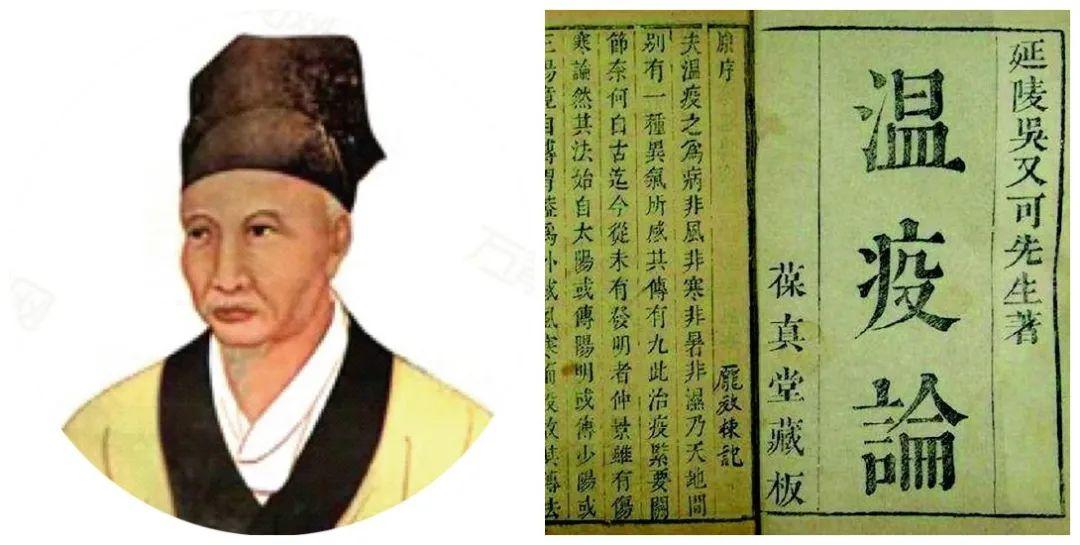 延陵吳又可先生著
温疫論
葆真堂藏板
原序
夫温疫之爲病非風非寒非暑非濕乃天地間
别有一種異氣所感其傳有九此治疫緊要關
節奈何自古迄今從未有發明者仲景雖有傷
寒論然其法始自太陽或傳陽明或傳少陽或
三陽竟自傳胃葢爲外感風寒而設故其傳法